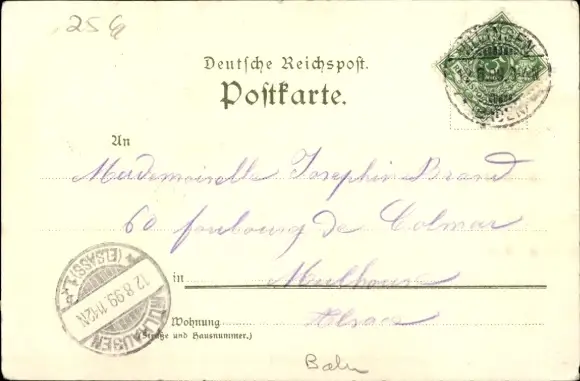 25 G
Deutsche Reichspost.
Postkarte.
An
Mademoiselle Josephin Brand
60 foubourg de Colmar
in Mulhouse
Wohnung Alsace
(Straße und Hausnummer.)
MÜLHAUSEN
(ELSASS) 1.
12.8.99. 11-12N